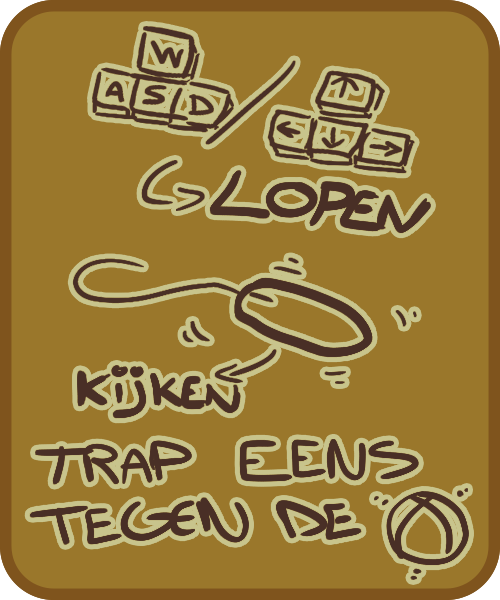 W
A S D / ↑ ← ↓ →
LOPEN
KIJKEN
TRAP EENS
TEGEN DE